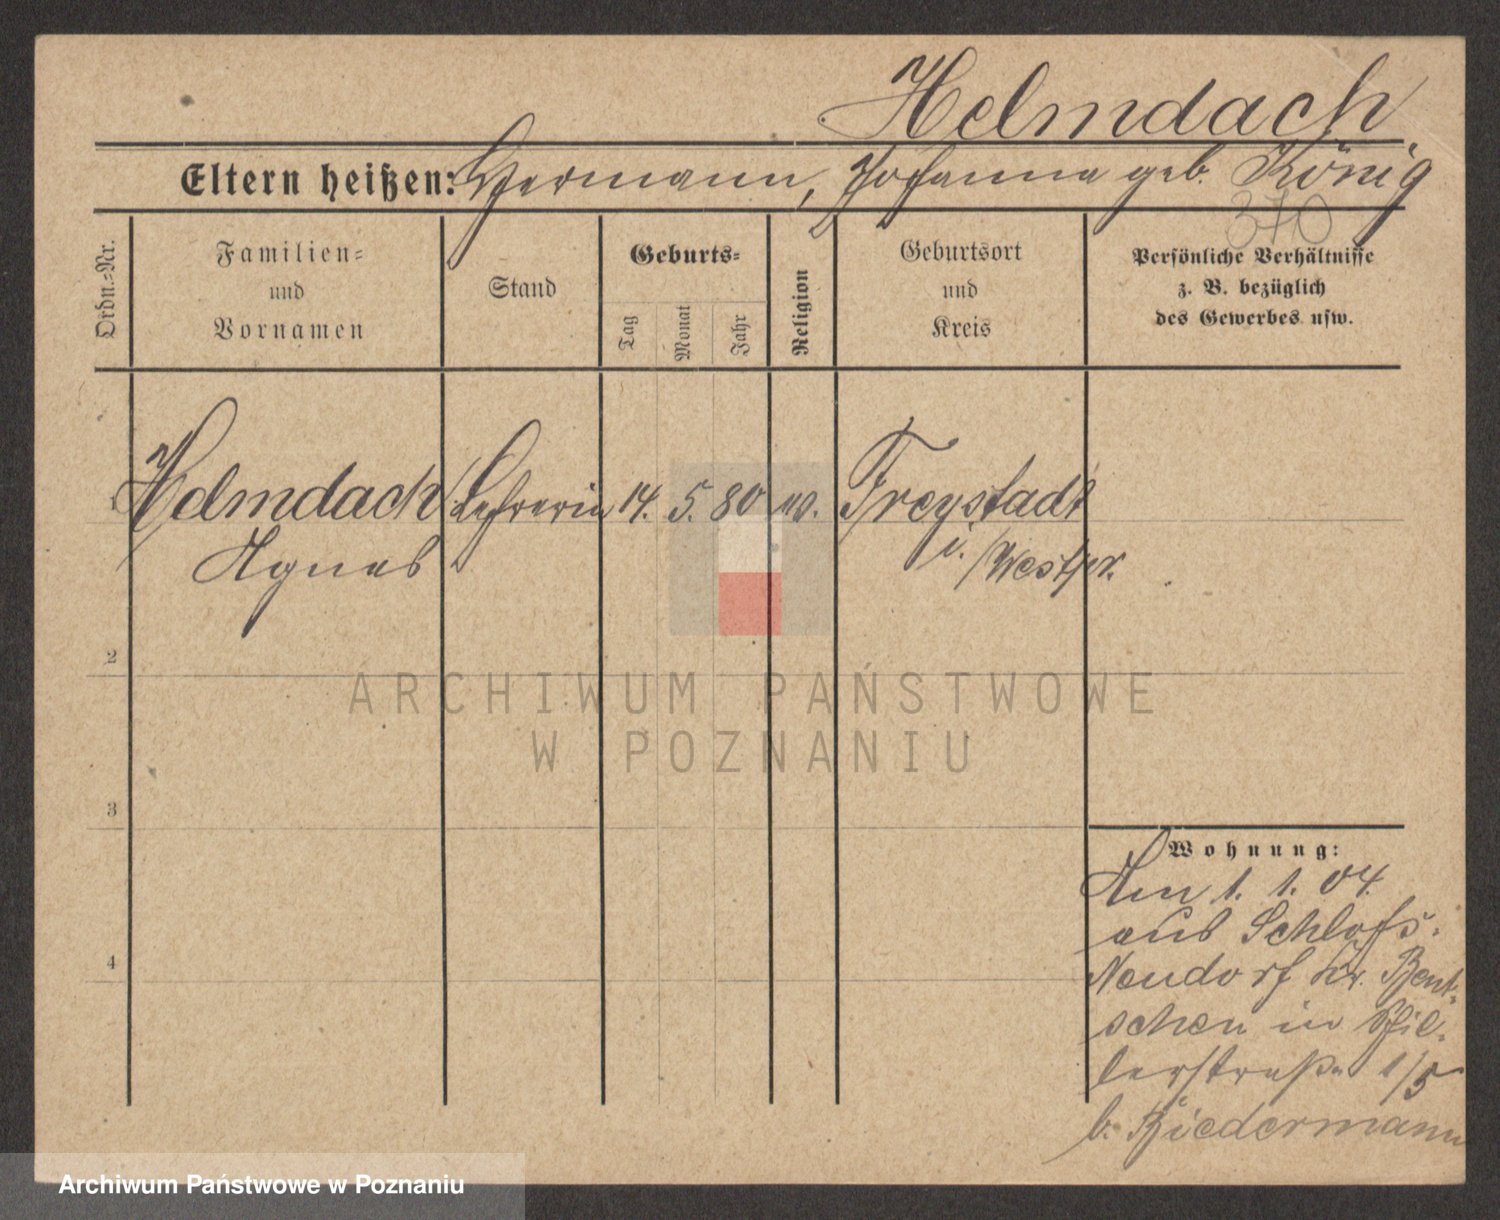 Helmdach
Eltern heißen: Hermann, Johanna geb. König
370
Ordn.-Nr.
Familien-
und
Vornamen
Stand
Geburts-
Tag
Monat
Jahr
Religion
Geburtsort
und
Kreis
Persönliche Verhältnisse
z. B. bezüglich
des Gewerbes usw.
1 Helmdach Lehrerin 14. 5. 80 ev. Freystadt
Agnes i./Westpr.
2
3
4
ARCHIWUM PAŃSTWOWE
W POZNANIU
Wohnung:
Am 1. 1. 04.
aus Schloß-
Neudorf Kr. Bent-
schen in Schil-
lerstraße 1/5
b. Biedermann
Archiwum Państwowe w Poznaniu